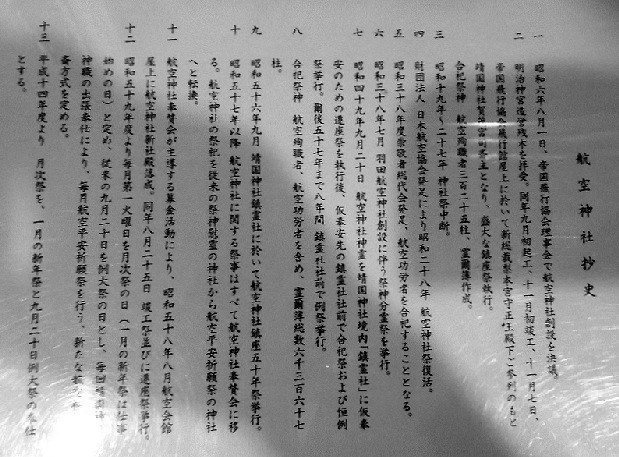 航空神社抄史
一 昭和六年八月一日、帝国飛行協会理事会で航空神社創設を決議。
二 明治神宮造営残木を拝受。同年九月初起工、十一月初竣工、十一月七日、
帝国飛行協会飛行館屋上に於いて新総裁梨本宮守正王殿下ご参列のもと
靖国神社賀茂宮司斎主となり、盛大な鎮座祭執行。
合祀祭神 航空殉職者三百二十五柱、霊爾簿作成。
三 昭和十九年〜二十七年 神社祭中断。
四 財団法人 日本航空協会発足により昭和二十八年 航空神社祭復活。
五 昭和三十八年度崇敬者総代会発足、航空功労者を合祀することとなる。
六 昭和三十八年七月 羽田航空神社創設に伴う祭神分霊祭を挙行。
七 昭和四十九年九月二十日 航空神社神霊を靖国神社境内「鎮霊社」に仮奉
安のための遷座祭を執行後、仮奉安先の鎮霊社社前で合祀祭および恒例
祭挙行。爾後五十七年まで八年間 鎮霊社社前で例祭挙行。
八 合祀祭神 航空殉職者、航空功労者を含め、霊爾簿総数六千三百六十七
柱。
九 昭和五十六年九月 靖国神社鎮霊社に於いて航空神社鎮座五十年祭挙行。
十 昭和五十七年以降 航空神社に関する祭事はすべて航空神社奉賛会に移
る。航空神社の祭祀を従来の祭神慰霊の神社から航空平安祈願祭の神社
へと転換。
十一 航空神社奉賛会が主導する募金活動により、昭和五十八年八月航空会館
屋上に航空神社新社殿落成。同年八月二十五日 竣工祭並びに遷座祭挙行。
十二 昭和五十九年度より毎月第一火曜日を月次祭の日(一月の新年祭は仕事
始めの日)と定め、従来の九月二十日を例大祭の日とし、毎回靖国
神職の出張奉仕により、毎月航空平安祈願祭を行う、新たな
斎方式を定める。
十三 平成十四年度より 月次祭を、一月の新年祭と九月二十日例大祭の奉仕
とする。